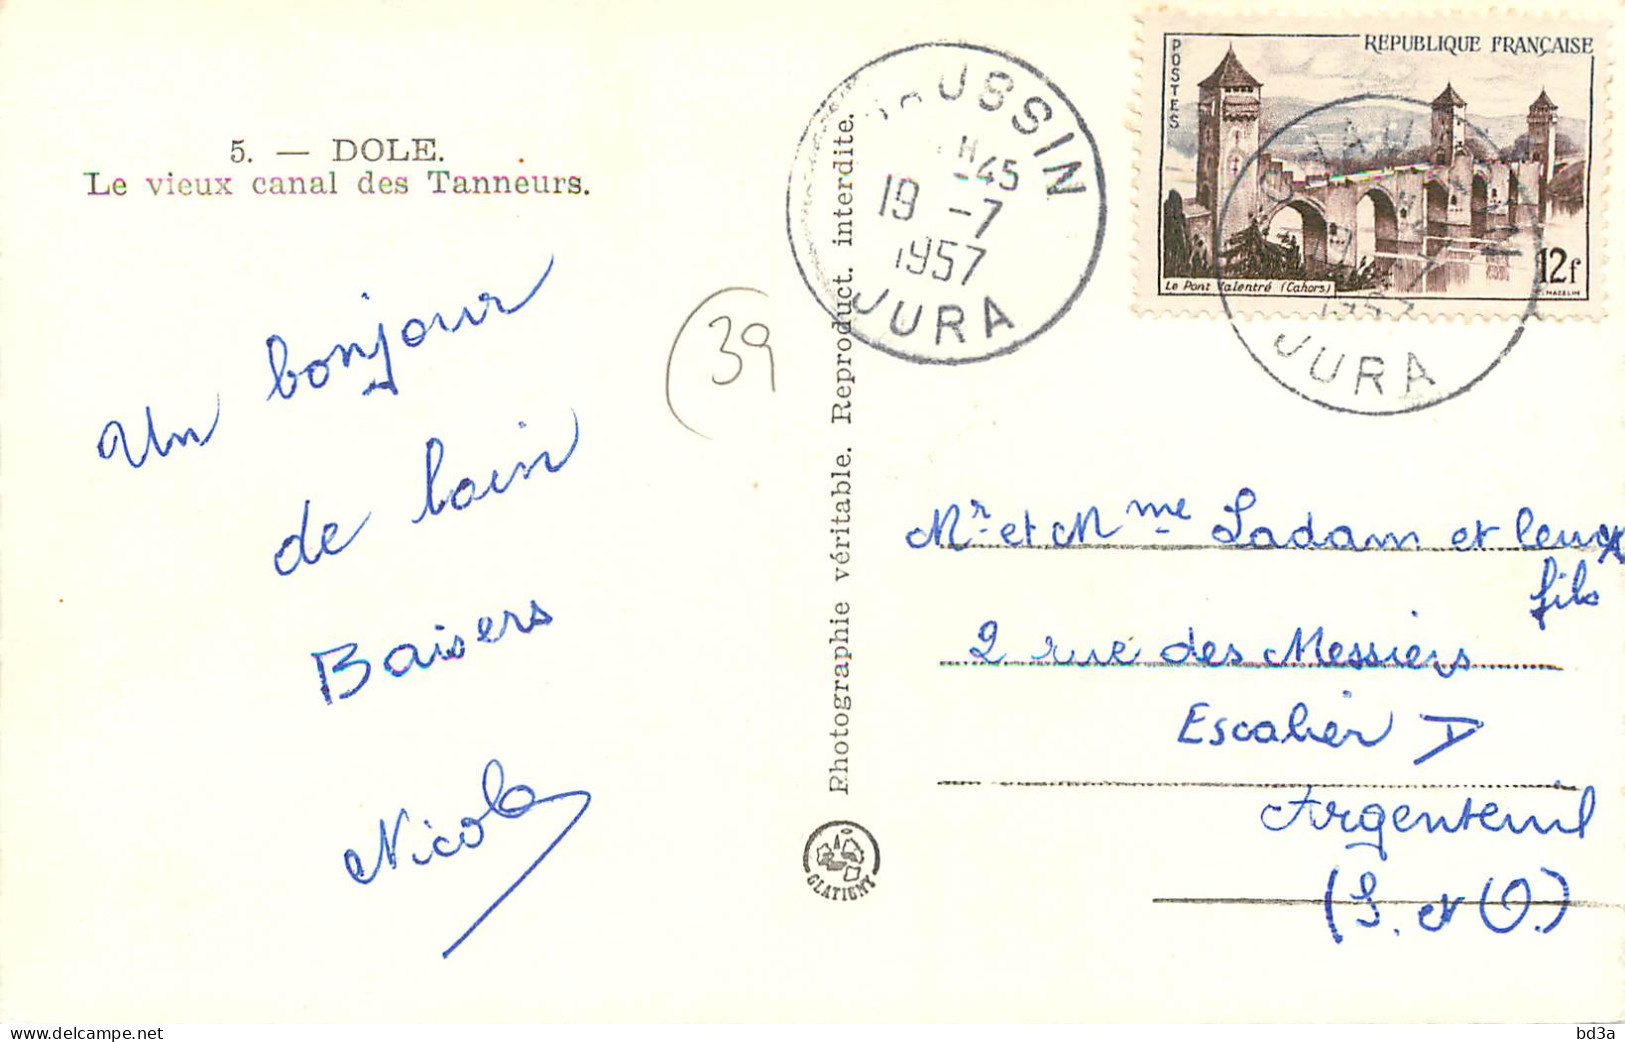 5. — DOLE.
Le vieux canal des Tanneurs.
Un bonjour
de loin
Baisers
Nicole
39
Photographie véritable. Reproduct. interdite.
GLATIGNY
USSIN
H
-45
19 -7
1957
JURA
POSTES
REPUBLIQUE FRANÇAISE
Le Pont Valentré (Cahors)
12f
HAZELIN
1957
JURA
Mr et Mme Ladam et leurs
fils
2 rue des Messiers
Escalier D
Argenteuil
(S. et O.)
bd3a